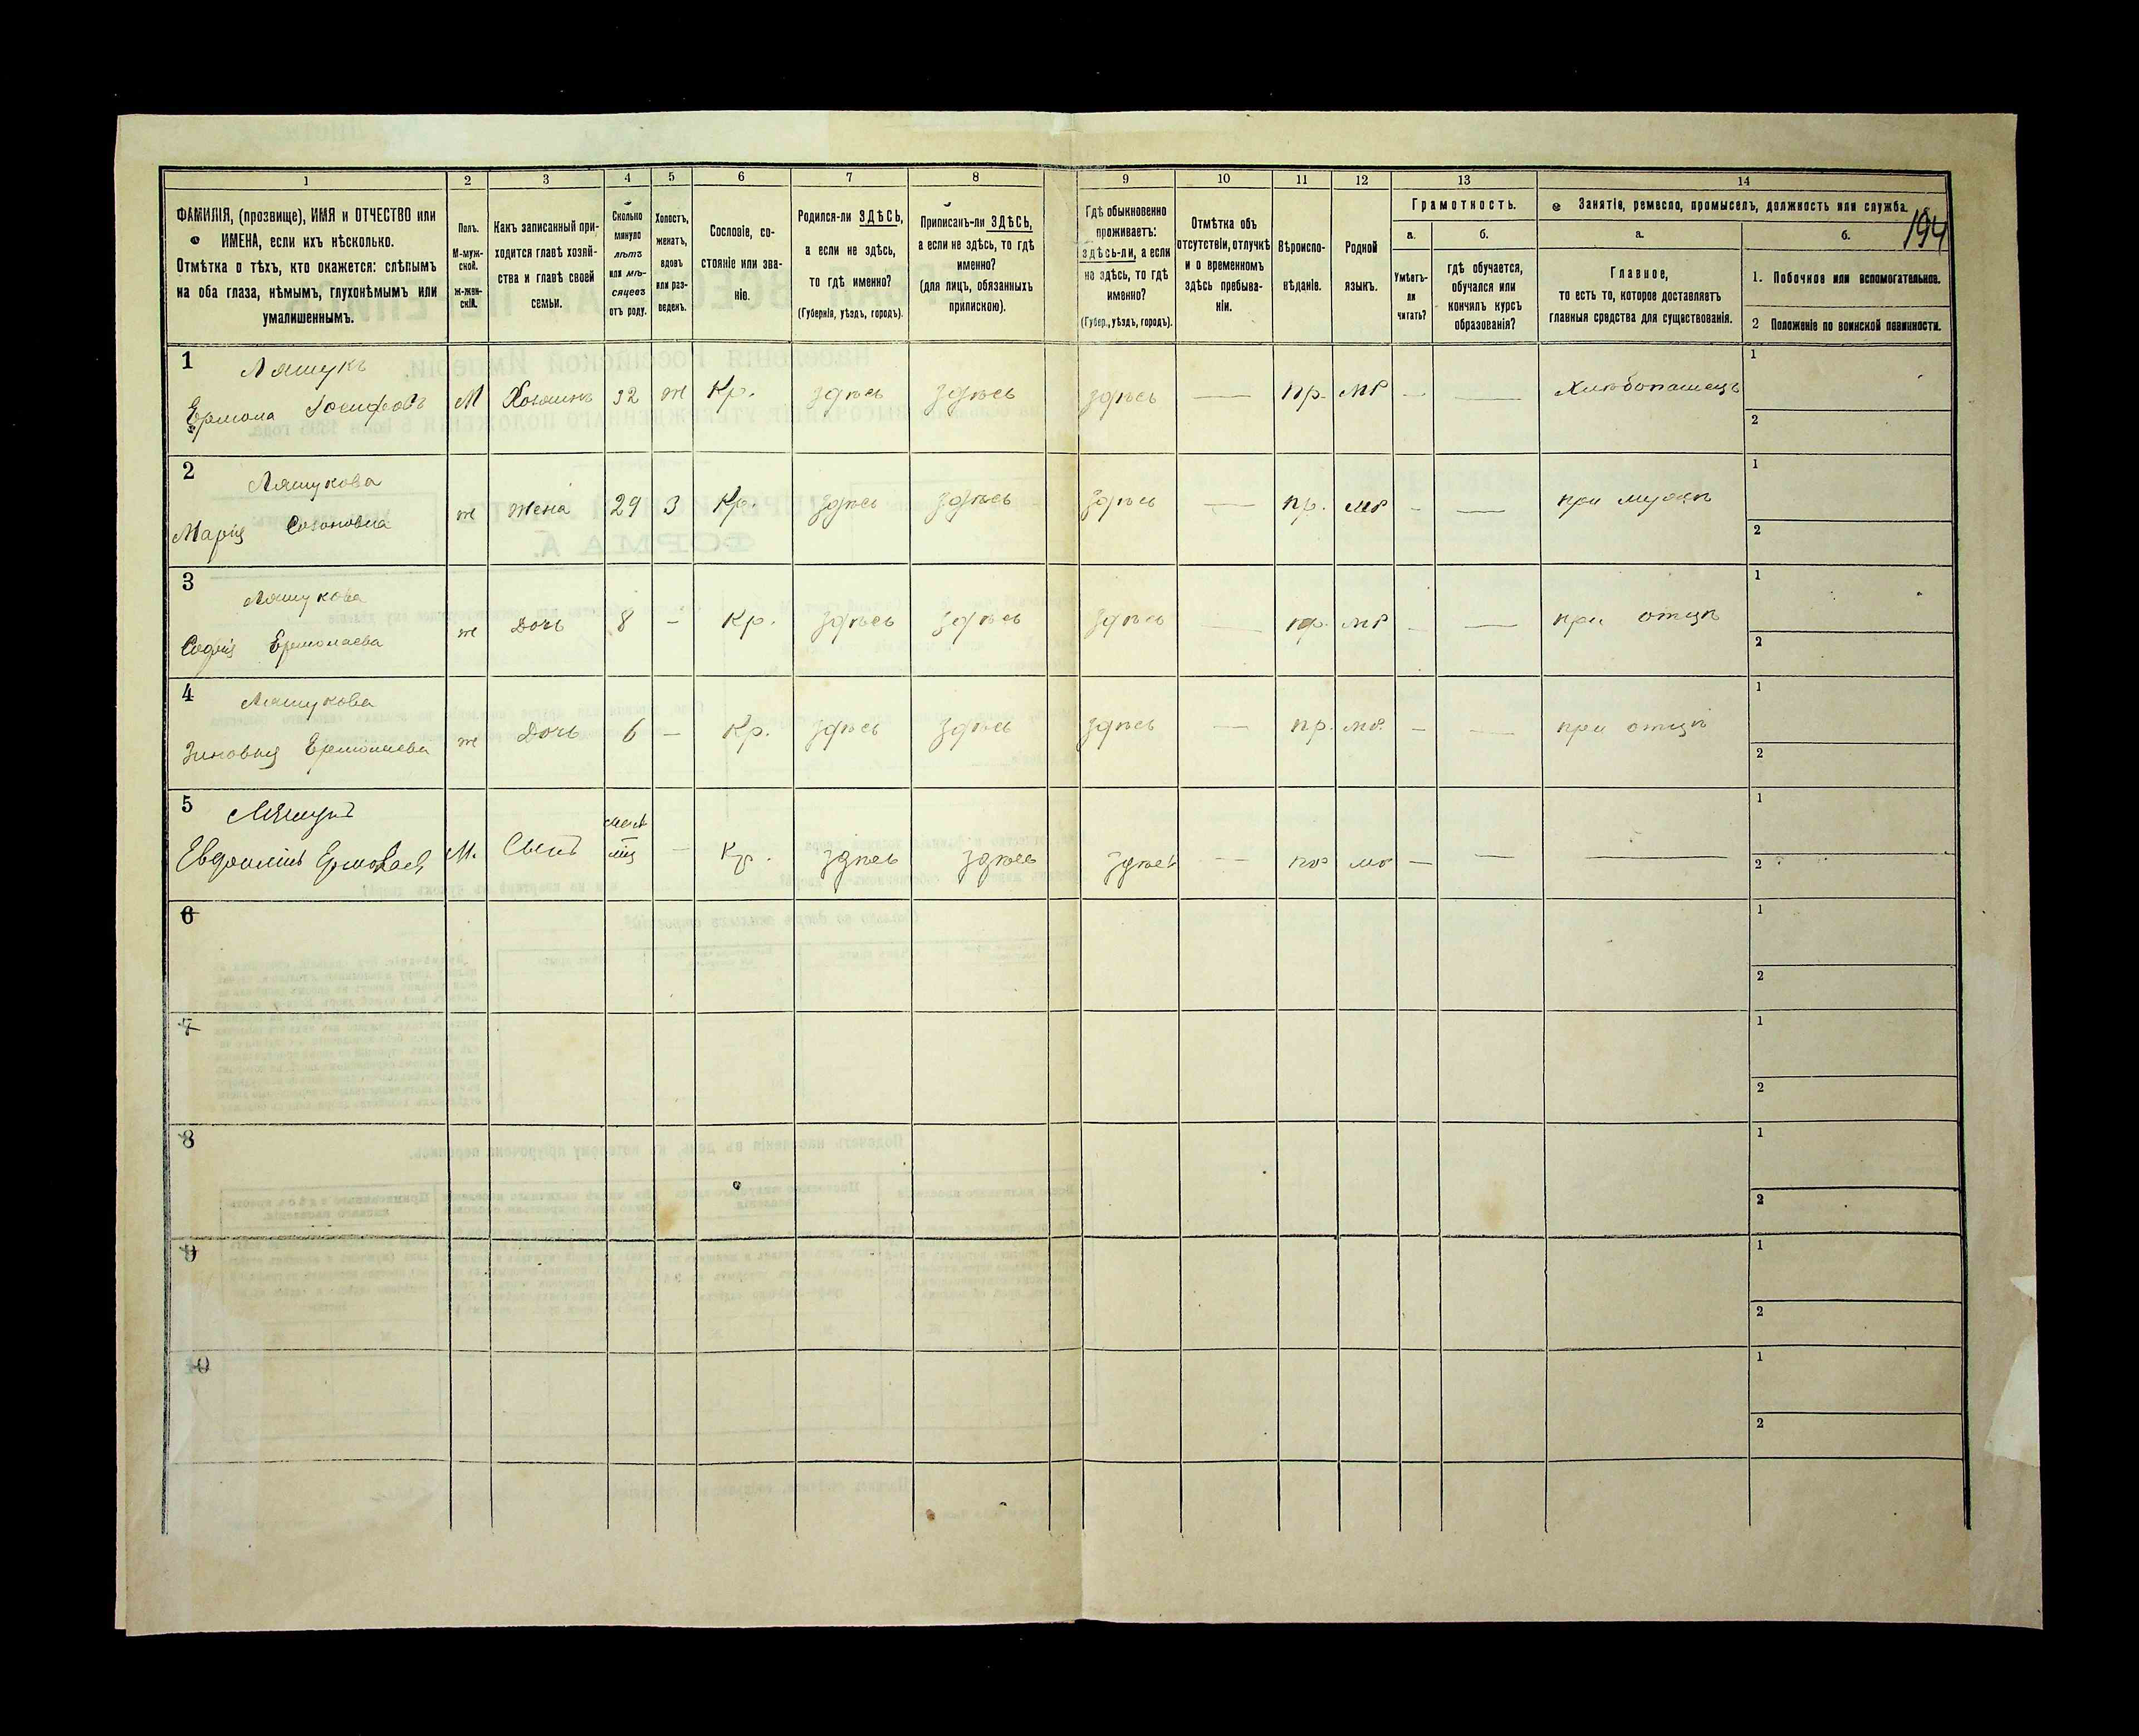 194
1 2 3 4 5 6 7 8 9 10 11 12 13 14
ФАМИЛІЯ, (прозвище), ИМЯ и ОТЧЕСТВО или
ИМЕНА, если ихъ нѣсколько.
Отмѣтка о тѣхъ, кто окажется: слѣпымъ
на оба глаза, нѣмымъ, глухонѣмымъ или
умалишеннымъ.
Полъ.
М-муж-
ской.
ж-жен-
скій.
Какъ записанный при-
ходится главѣ хозяй-
ства и главѣ своей
семьи.
Сколько
минуло
лѣтъ
или мѣ-
сяцевъ
отъ роду.
Холостъ,
женатъ,
вдовъ
или раз-
веденъ.
Сословіе, со-
стояніе или зва-
ніе.
Родился-ли ЗДѢСЬ,
а если не здѣсь,
то гдѣ именно?
(Губернія, уѣздъ, городъ).
Приписанъ-ли ЗДѢСЬ,
а если не здѣсь, то гдѣ
именно?
(для лицъ, обязанныхъ
припискою).
Гдѣ обыкновенно
проживаетъ:
здѣсь-ли, а если
не здѣсь, то гдѣ
именно?
(Губер., уѣздъ, городъ).
Отмѣтка объ
отсутствіи, отлучкѣ
и о временномъ
здѣсь пребыва-
ніи.
Вѣроиспо-
вѣданіе.
Родной
языкъ.
Грамотность.
а.
Умѣетъ-
ли
читать?
б.
гдѣ обучается,
обучался или
кончилъ курсъ
образованія?
Занятіе, ремесло, промыселъ, должность или служба.
а.
Главное,
то есть то, которое доставляетъ
главныя средства для существованія.
б.
1. Побочное или вспомогательное.
2 Положеніе по воинской повинности.
1 Ляшукъ 1
Ермола Іосифовъ М Хозяинъ 32 ж Кр. здѣсь здѣсь здѣсь — пр. мр - — Хлѣбопашецъ
2
2 Ляшукова 1
Марія Созоновна ж жена 29 з Кр. здѣсь здѣсь здѣсь — пр. мр - — при мужѣ
2
3 Ляшукова 1
Софія Ермолаева ж Дочь 8 - Кр. здѣсь здѣсь здѣсь — пр. мр - — при отцѣ
2
4 Ляшукова 1
Зиновія Ермолаева ж Дочь 6 - Кр. здѣсь здѣсь здѣсь — пр. мр. - — при отцѣ
2
5 Ляшукъ 1
Ермолаев М. Сынъ - Кр. здѣсь здѣсь здѣсь — пр мр — — —
2
6 1
2
7 1
2
8 1
2
9 1
2
10 1
2